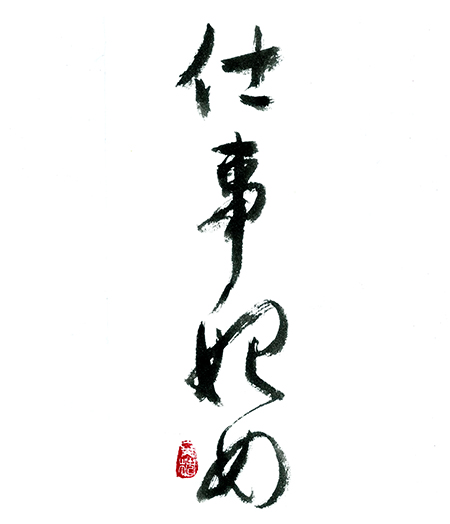 仕事始め